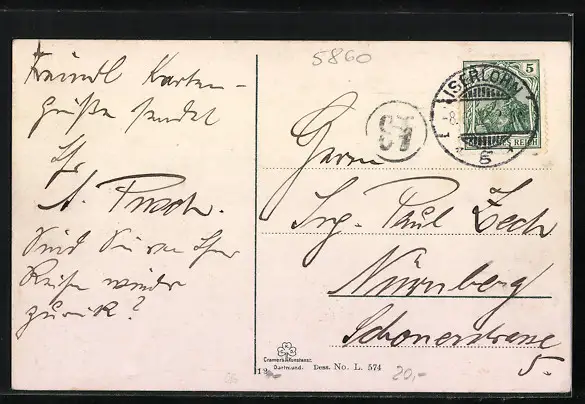 Freundl Karten-
Grüße sendet
Ihr
A. Pusch.
Sind Sie von Ihrer
Reise wieder
zurück?
5860
ISERLOHN
5
-8.
* g *
S REICH
Herrn
Ing. Paul Zech
Nürnberg
Schonerstrasse
5.
Cramers Kunstanst.
Dortmund.
Dess. No. L. 574
19
20,-